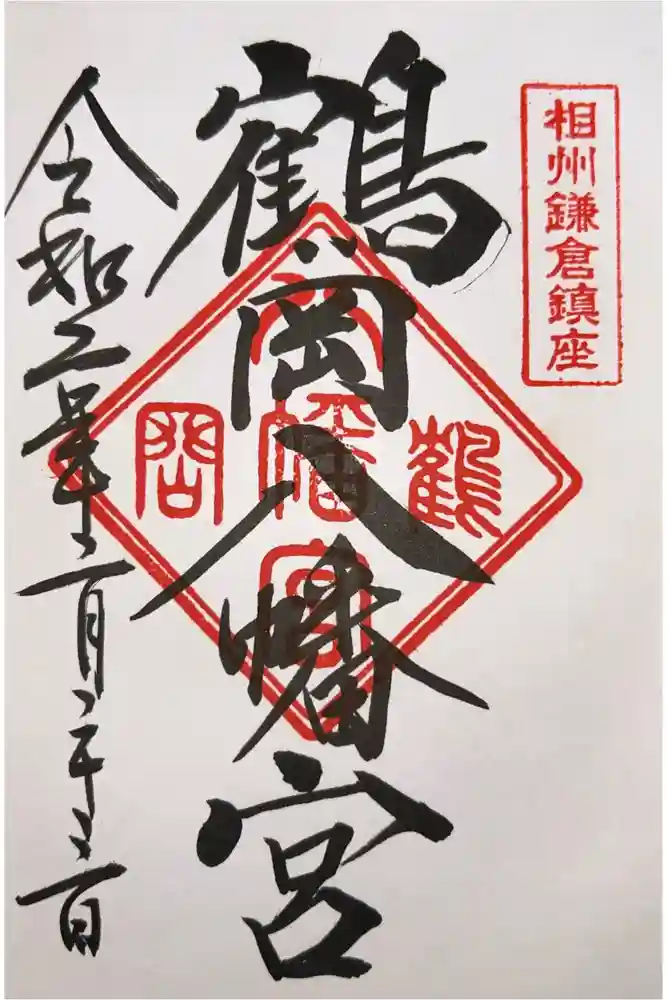 相州鎌倉鎮座
鶴岡八幡宮
鶴
八幡宮
岡
令和二年二月二十二日